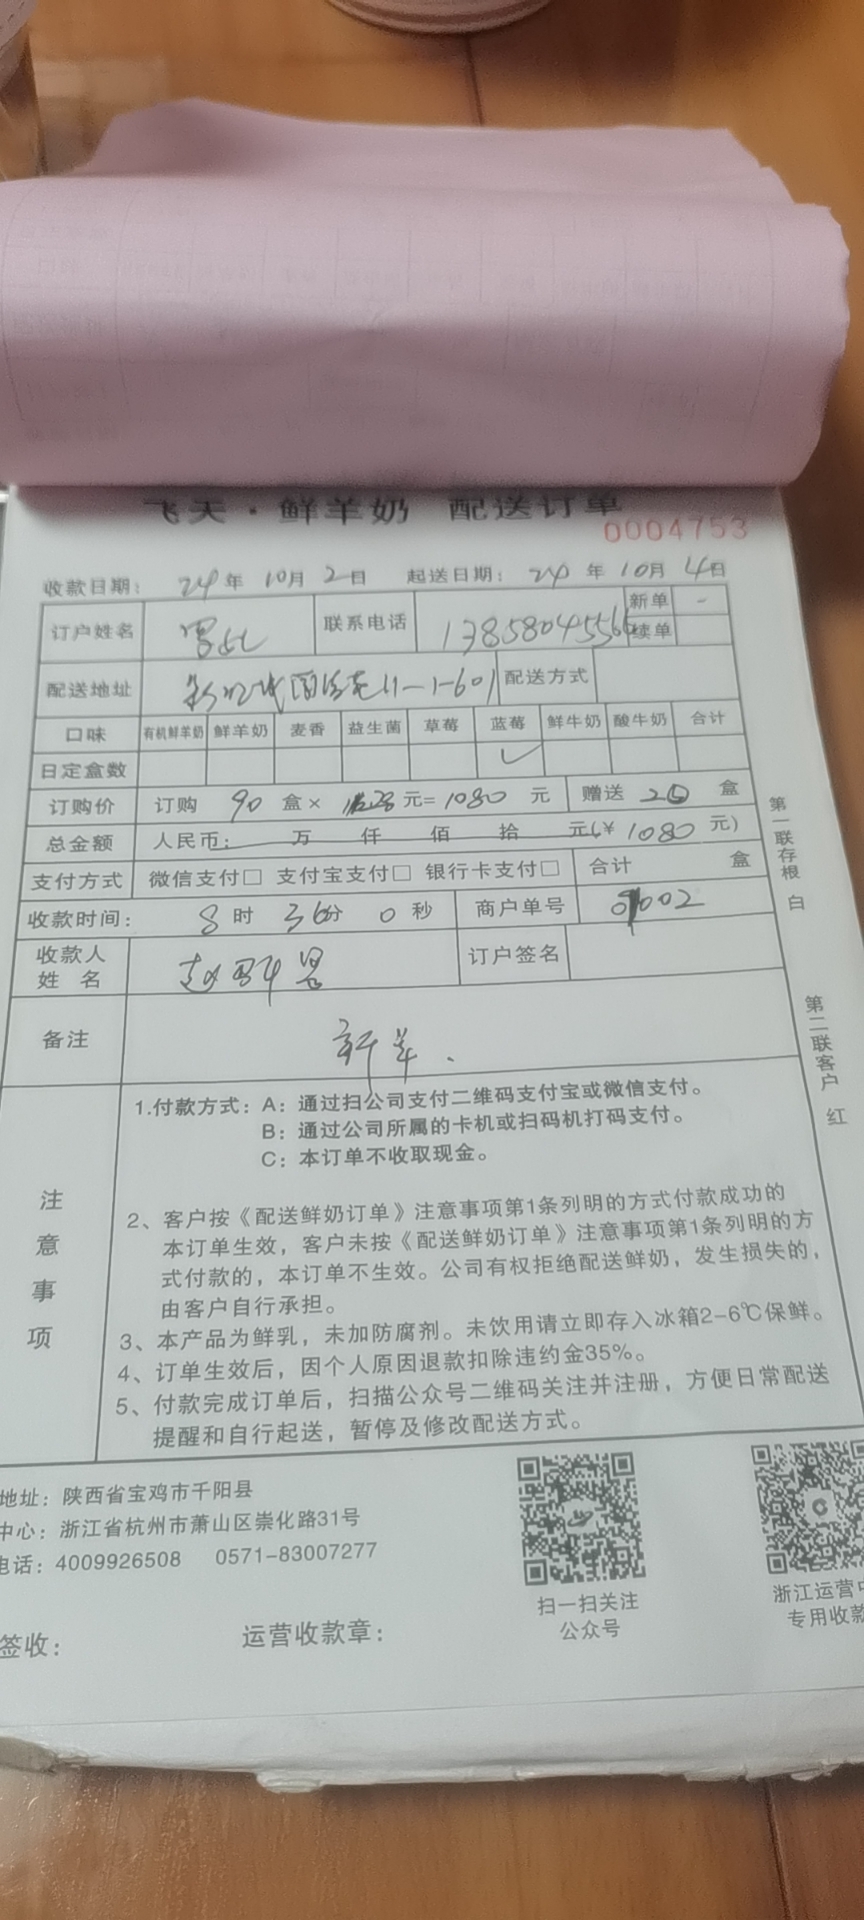 飞天·鲜羊奶 配送订单
0004753
收款日期: 24年10月2日 起送日期: 24年10月4日
订户姓名 联系电话 13858045566 新单 -
续单
配送地址 11-1-601 配送方式
口味 有机鲜羊奶 鲜羊奶 麦香 益生菌 草莓 蓝莓 鲜牛奶 酸牛奶 合计
日定盒数 ✓
订购价 订购 90 盒× 元=1080 元 赠送 盒
总金额 人民币: 万 仟 佰 拾 元(¥ 1080 元)
支付方式 微信支付□ 支付宝支付□ 银行卡支付□ 合计 盒
收款时间: 8时36分0秒 商户单号
收款人
姓 名 订户签名
备注 新单.
第一联存根 白
第二联客户 红
注意事项
1.付款方式: A: 通过扫公司支付二维码支付宝或微信支付。
B: 通过公司所属的卡机或扫码机打码支付。
C: 本订单不收取现金。
2、客户按《配送鲜奶订单》注意事项第1条列明的方式付款成功的
本订单生效，客户未按《配送鲜奶订单》注意事项第1条列明的方
式付款的，本订单不生效。公司有权拒绝配送鲜奶，发生损失的，
由客户自行承担。
3、本产品为鲜乳，未加防腐剂。未饮用请立即存入冰箱2-6℃保鲜。
4、订单生效后，因个人原因退款扣除违约金35%。
5、付款完成订单后，扫描公众号二维码关注并注册，方便日常配送
提醒和自行起送，暂停及修改配送方式。
地址: 陕西省宝鸡市千阳县
中心: 浙江省杭州市萧山区崇化路31号
电话: 4009926508 0571-83007277
扫一扫关注
公众号
浙江运营中
专用收款
签收: 运营收款章: